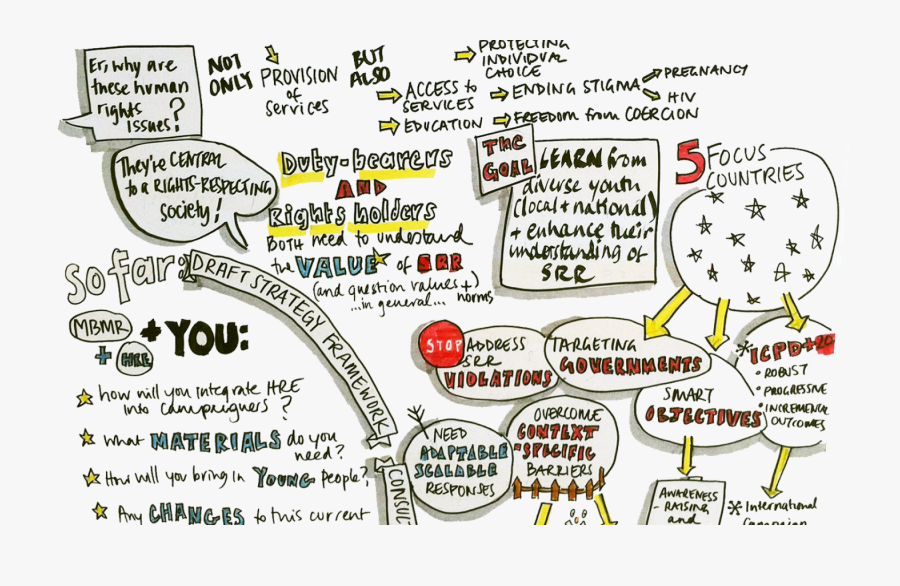 Er, why are
these human
rights
issues?
NOT
ONLY
PROVISION
of
services
BUT
ALSO
PROTECTING
INDIVIDUAL
CHOICE
ACCESS to
SERVICES
ENDING STIGMA
PREGNANCY
HIV
EDUCATION
FREEDOM from COERCION
They're CENTRAL
to a RIGHTS-RESPECTING
society!
Duty-bearers
AND
Rights holders
BOTH need to understand
the VALUE of SRR
(and question values +
...in general... norms
THE
GOAL
LEARN from
diverse youth
(local + national)
+ enhance their
understanding of
SRR
5 FOCUS
COUNTRIES
so far:
DRAFT STRATEGY FRAMEWORK
MBMR
+ HRE
+ YOU:
how will you integrate HRE
into campaigners?
What MATERIALS do you
need?
How will you bring in YOUNG People?
Any CHANGES to this current
CONSUL
STOP
ADDRESS
SRR
VIOLATIONS
TARGETING
GOVERNMENTS
SMART
OBJECTIVES
ICPD+20
• ROBUST
• PROGRESSIVE
• INCREMENTAL
OUTCOMES
NEED
ADAPTABLE
SCALABLE
RESPONSES
OVERCOME
CONTEXT
-SPECIFIC
BARRIERS
AWARENESS
- RAISING
and
International
Campaign